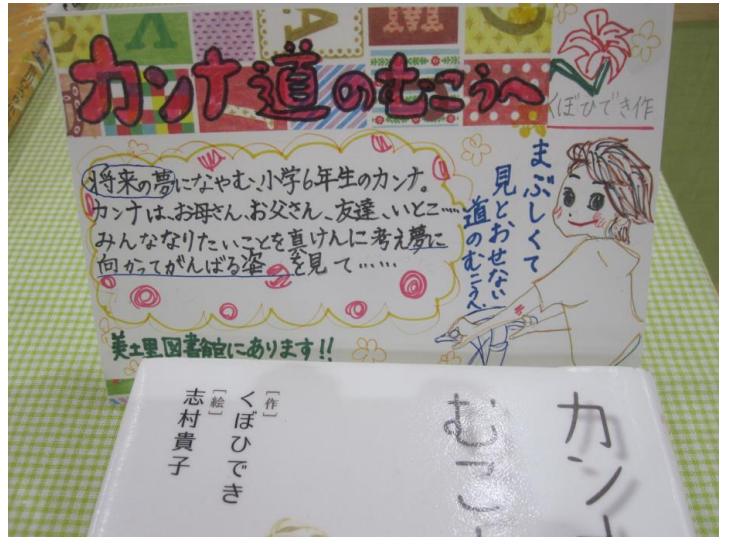 カンナ道のむこうへ
くぼひでき作
将来の夢になやむ、小学6年生のカンナ。
カンナは、お母さん、お父さん、友達、いとこ……
みんななりたいことを真けんに考え夢に
向かってがんばる姿を見て……
まぶしくて
見とおせない
道のむこうへ
美土里図書館にあります!!
カンナ
むこ
[作]
くぼひでき
[絵]
志村貴子